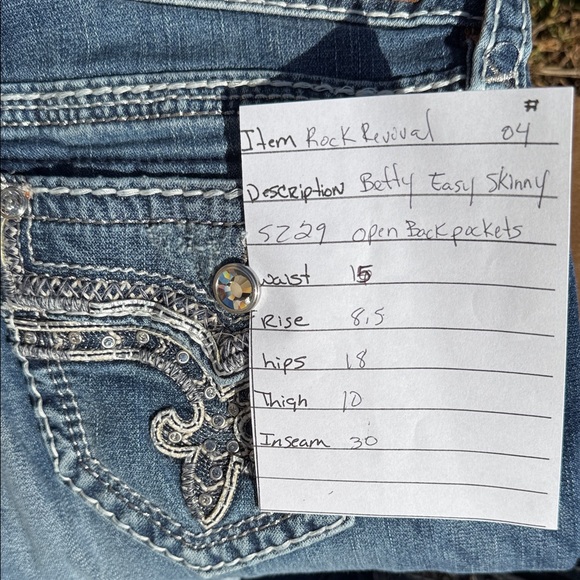 #
Item Rock Revival 04
Description Betty Easy Skinny
SZ29 open Back pockets
waist 15
Rise 8.5
hips 18
Thigh 10
Inseam 30